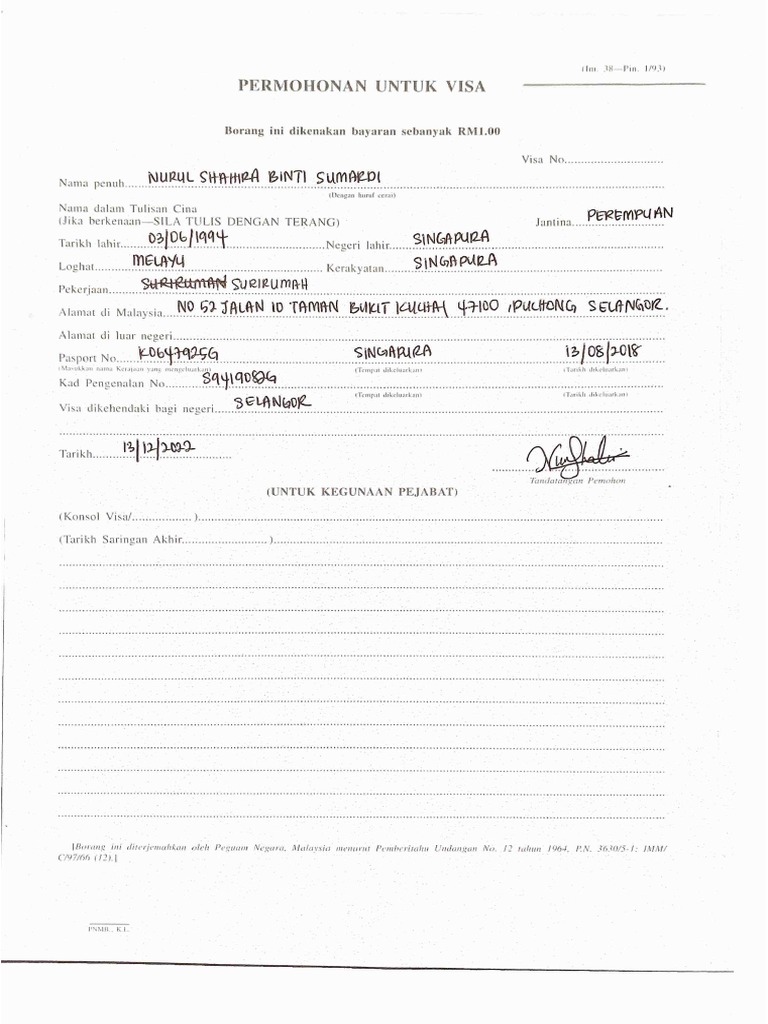 (Im. 38—Pin. 1/93)
PERMOHONAN UNTUK VISA
Borang ini dikenakan bayaran sebanyak RM1.00
Visa No............................
Nama penuh... NURUL SHAHIRA BINTI SUMARDI
(Dengan huruf cerai)
Nama dalam Tulisan Cina
(Jika berkenaan—SILA TULIS DENGAN TERANG) Jantina... PEREMPUAN
Tarikh lahir... 03/06/1994 Negeri lahir... SINGAPURA
Loghat... MELAYU Kerakyatan... SINGAPURA
Pekerjaan... SURIRUMAH
Alamat di Malaysia... NO 52 JALAN 10 TAMAN BUKIT KUCHAI 47100 , PUCHONG SELANGOR.
Alamat di luar negeri...
Pasport No... K0647925G SINGAPURA 13/08/2018
(Masukkan nama Kerajaan yang mengeluarkan) (Tempat dikeluarkan) (Tarikh dikeluarkan)
Kad Pengenalan No... S9419082G
(Tempat dikeluarkan) (Tarikh dikeluarkan)
Visa dikehendaki bagi negeri... SELANGOR
Tarikh... 13/12/2022
Tandatangan Pemohon
(UNTUK KEGUNAAN PEJABAT)
(Konsol Visa/....................)
(Tarikh Saringan Akhir............................)
[Borang ini diterjemahkan oleh Peguam Negara, Malaysia menurut Pemberitahu Undangan No. 12 tahun 1964, P.N. 3630/5-1; IMM/
C/97/66 (12).]
PNMB., K.L.